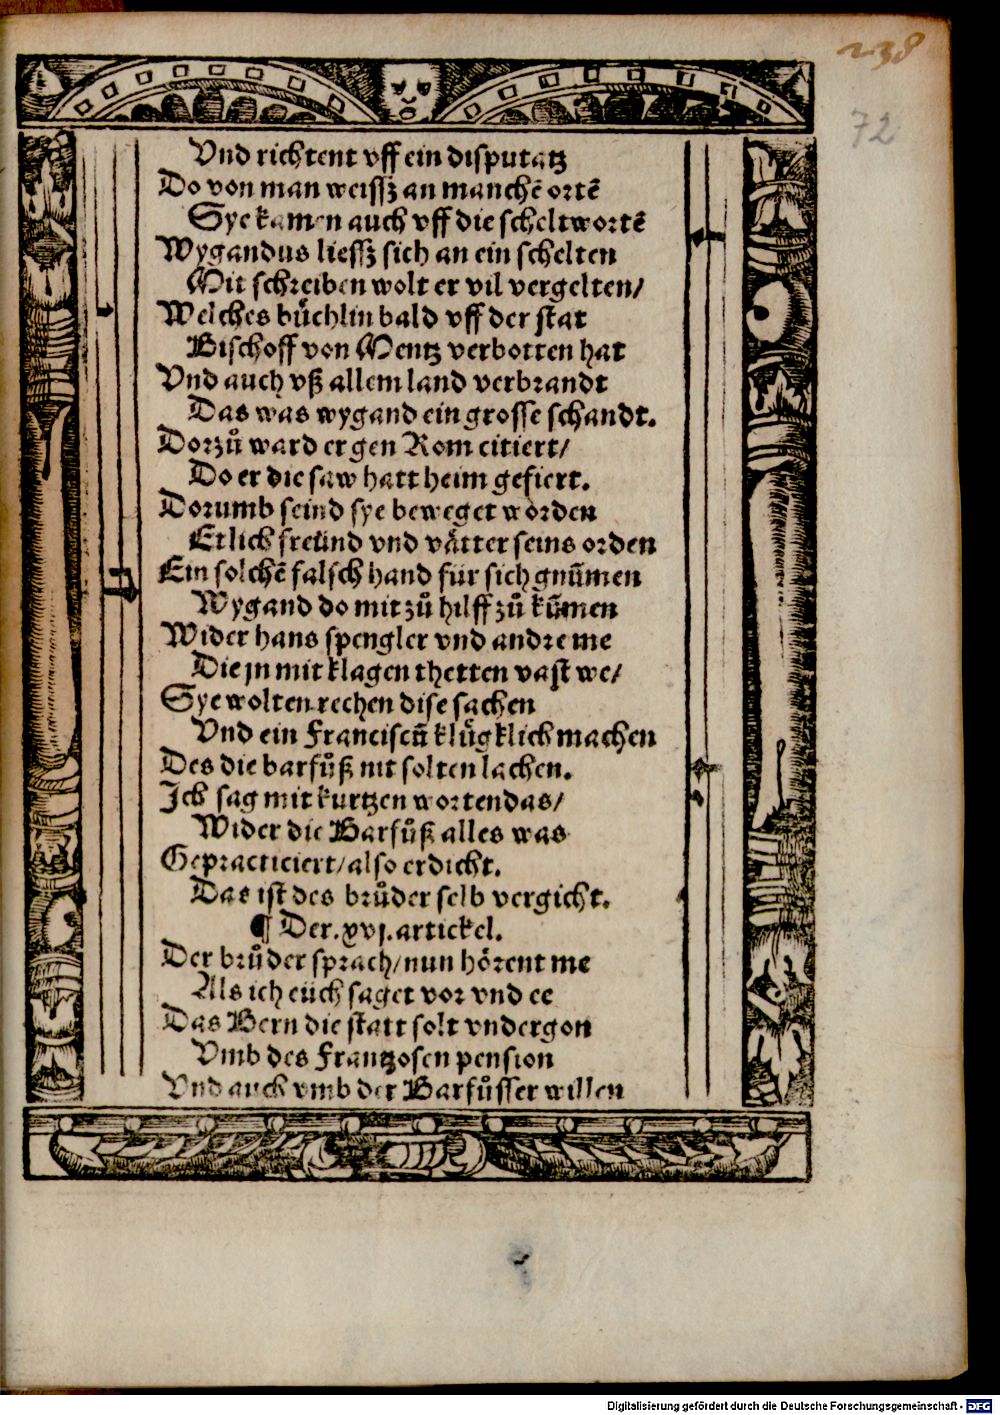 238
72
Vnd richtent vff ein disputatz
Do von man weissz an manchē ortē
Sye kamen auch vff die scheltwortē
Wygandus liessz sich an ein schelten
Mit schreiben wolt er vil vergelten/
Welches bu̍chlin bald vff der stat
Bischoff von Mentz verbotten hat
Vnd auch vß allem land verbrandt
Das was wygand ein grosse schandt.
Dorzů ward er gen Rom citiert/
Do er die saw hatt heim gefiert.
Dorumb seind sye beweget worden
Etlich freünd vnd vätter seins orden
Ein solchē falsch hand für sich gnūmen
Wygand do mit zů hilff zů kūmen
Wider hans spengler vnd andre me
Die jn mit klagen thetten vast we/
Sye wolten rechen dise sachen
Vnd ein Franciscū klu̍gklich machen
Des die barfůß nit solten lachen.
Ich sag mit kurtzen worten das/
Wider die Barfůß alles was
Gepracticiert/also erdicht.
Das ist des brůder selb vergicht.
¶ Der.xvj.artickel.
Der brůder sprach/nun hörent me
Als ich eüch saget vor vnd ee
Das Bern die statt solt vndergon
Vmb des Frantzosen pension
Vnd auch vmb der Barfůsser willen
Digitalisierung gefördert durch die Deutsche Forschungsgemeinschaft - DFG